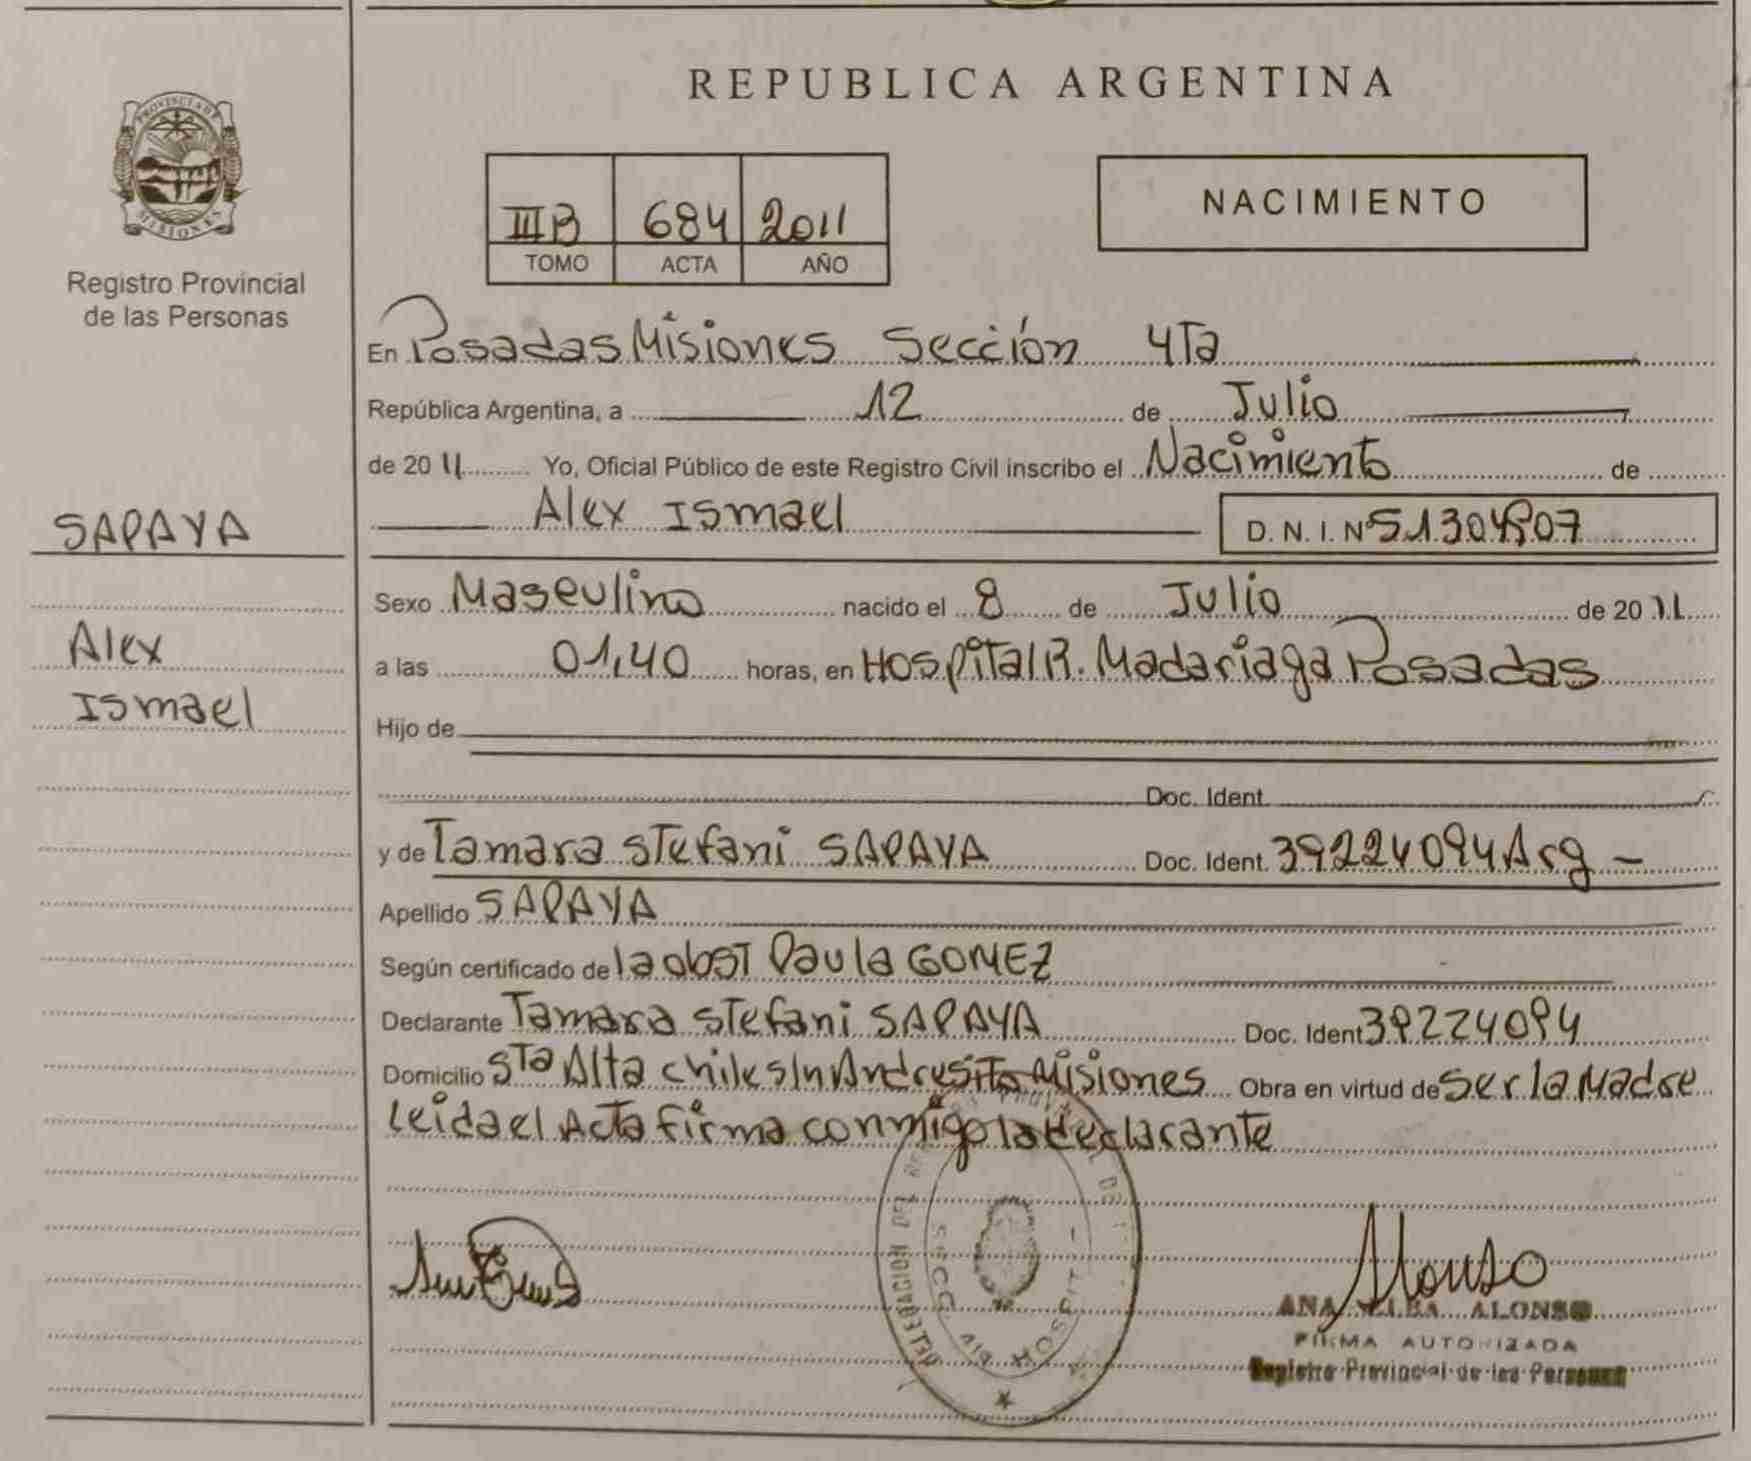 REPUBLICA ARGENTINA
PROVINCIA DE
MISIONES
Registro Provincial
de las Personas
IIIB 684 2011
TOMO ACTA AÑO
NACIMIENTO
En Posadas Misiones Sección 4Ta
República Argentina, a 12 de Julio
de 2011 Yo, Oficial Público de este Registro Civil inscribo el Nacimiento de
Alex Ismael D. N. I. Nº
SAPAYA
Alex
Ismael
Sexo Masculino nacido el 8 de Julio de 2011
a las 01,40 horas, en Hospital R. Madariaga Posadas
Hijo de
Doc. Ident.
y de Tamara Stefani SAPAYA Doc. Ident. 39224094 Arg -
Apellido SAPAYA
Según certificado de la obst Paula GOMEZ
Declarante Tamara Stefani SAPAYA Doc. Ident 39224094
Domicilio Sta Alta Chile s/n Andresito Misiones Obra en virtud de ser la Madre
leida el Acta firma conmigo la declarante
Alonso
ANA ALONSO
FIRMA AUTORIZADA
Registro Provincial de las Personas